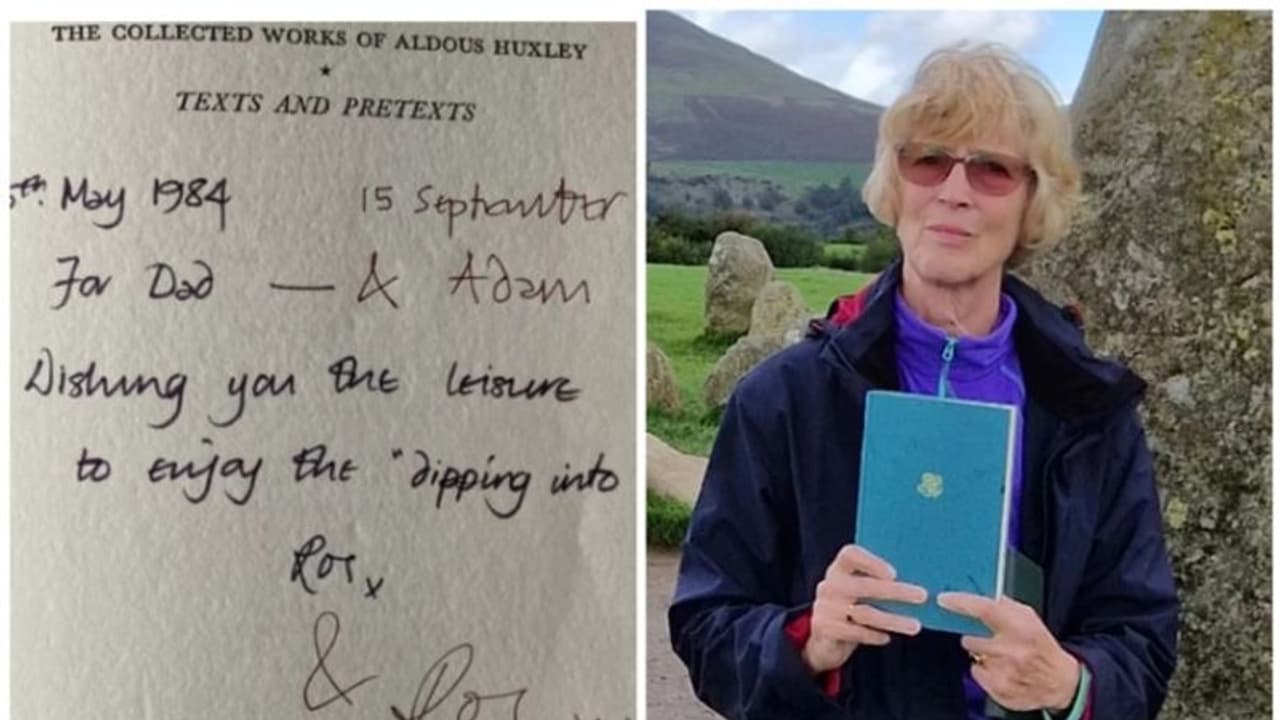 THE COLLECTED WORKS OF ALDOUS HUXLEY
TEXTS AND PRETEXTS
May 1984 15 September
For Dad — & Adam
Wishing you the leisure
to enjoy the "dipping into
Ros x
& Ros